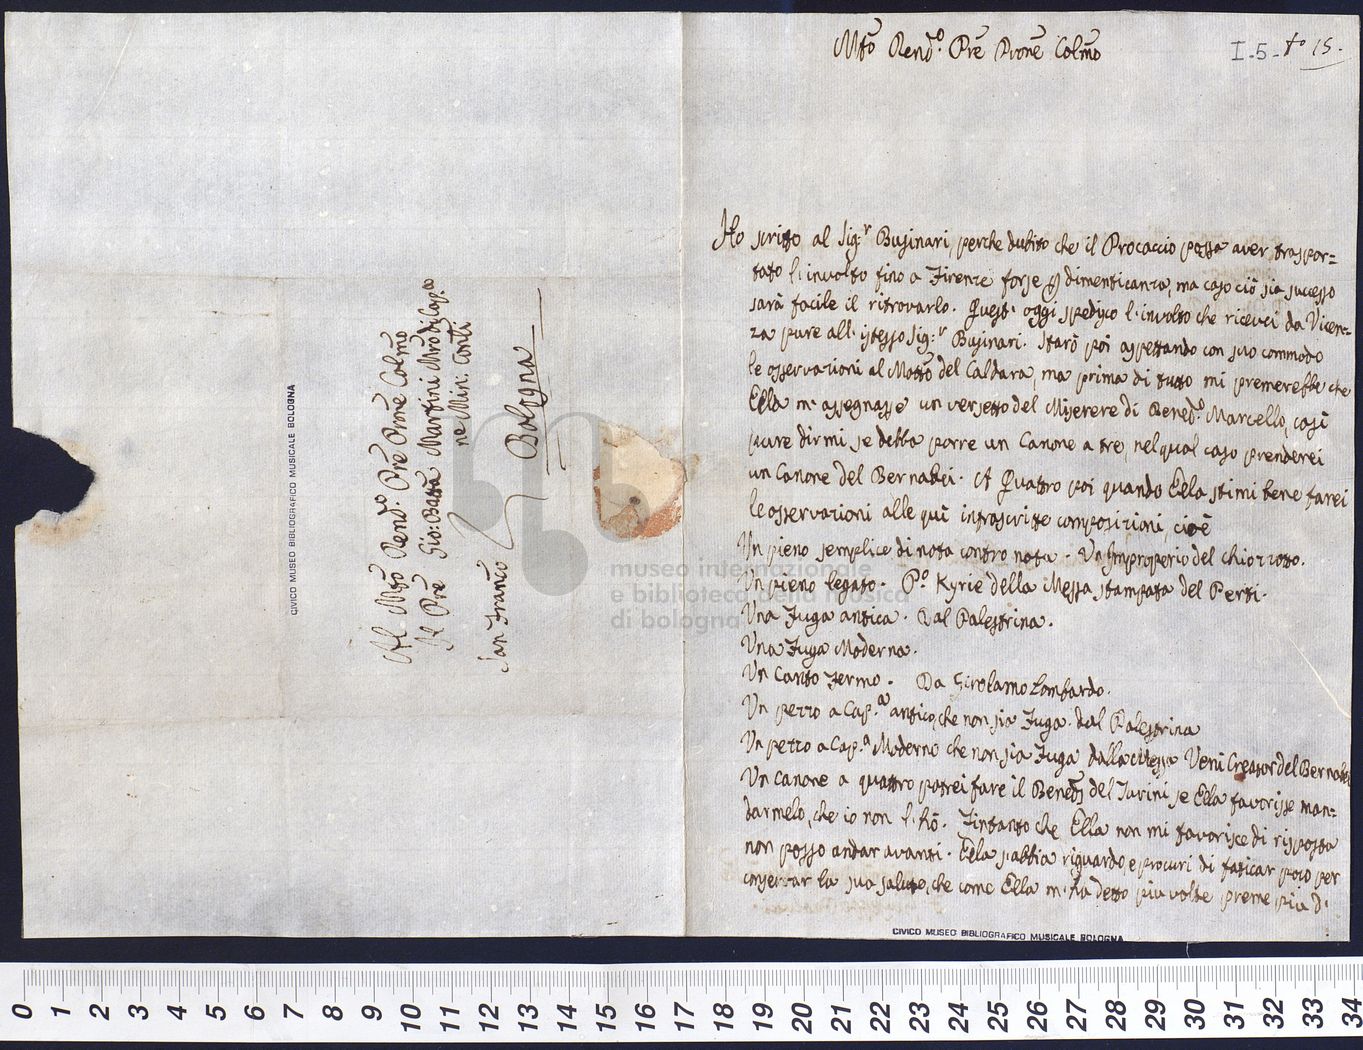 Mtō Rendº. Prē Pronē Colmō
I-5-tº 15.
Ho scritto al Sig:r Businari, perche dubito che il Procaccio possa aver traspor=
tato l'involto fino a Firenze forse p dimenticanza, ma caso ciò sia successo
sarà facile il ritrovarlo. Quest'oggi spedisco l'involto che ricevei da Vicen=
za pure all'istesso Sig:r Businari. Starò poi aspettando con suo commodo
le osservazioni al Mottō del Caldara, ma prima di tutto mi premerebbe che
Ella m'assegnasse un versetto del Miserere di Benedº. Marcello, così
pure dirmi se debba porre un Canone a tre, nel qual caso prenderei
un Canone del Bernabei. A Quattro poi quando Ella stimi bene farei
le osservazioni alle quì infrascritte composizioni, cioè
Un pieno semplice di nota contro nota. Un Improperio del Chiozzotto.
Un pieno legato. Pº. Kyrie della Messa stampata del Perti.
Una Fuga antica. Dal Palestrina.
Una Fuga Moderna.
Un Canto Fermo. Da Girolamo Lombardo.
Un pezzo a Cap.a antico, che non sia Fuga. dal Palestrina
Un pezzo a Cap.a Moderno che non sia Fuga dalla Messa Veni Creator del Bernabei
Un Canone a quattro potrei fare il Bened del Turini se Ella favorisse man=
darmelo, che io non l'hò. Fintanto che Ella non mi favorisce di risposta
non posso andar avanti. Ella s'abbia riguardo, e procuri di faticar poco per
conservar la sua salute, che come Ella m'ha detto più volte preme più d'
CIVICO MUSEO BIBLIOGRAFICO MUSICALE BOLOGNA
Al Mtō Rendº. Prē Pronē Colmō
Il Prē Gio: Battā Martini Mrō di Cap.a
ne Min: Conti
San Francō
Bologna
CIVICO MUSEO BIBLIOGRAFICO MUSICALE BOLOGNA
museo internazionale
e biblioteca della musica
di bologna
0 1 2 3 4 5 6 7 8 9 10 11 12 13 14 15 16 17 18 19 20 21 22 23 24 25 26 27 28 29 30 31 32 33 34